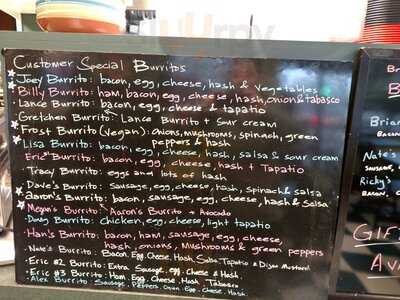 Customer Special Burritos
Joey Burrito: bacon, egg, cheese, hash & vegetables
Billy Burrito: ham, bacon, egg, cheese, hash, onion & tabasco
Lance Burrito: bacon, egg, cheese & tapatio
Gretchen Burrito: Lance Burrito + Sour cream
Frost Burrito (Vegan): onions, mushrooms, spinach, green
peppers & hash
Lisa Burrito: bacon, egg, cheese, hash, salsa & sour cream
Eric Burrito: bacon, egg, cheese, hash + Tapatio
Tracy Burrito: eggs and lots of hash
Dave's Burrito: Sausage, egg, cheese, hash, spinach & salsa
Aaron's Burrito: bacon, sausage, egg, cheese, hash & Salsa
Megan's Burrito: Aaron's Burrito + Avocado
Doug Burrito: Chicken, egg, cheese, light tapatio
Han's Burrito: bacon, ham, sausage, egg, cheese,
hash, onions, Mushrooms & green peppers
Nate's Burrito: Bacon, Egg, Cheese, Hash, Salsa, Tapatio & Dijon Mustard
Eric #2 Burrito: Extra Sausage, egg, cheese & Hash
Eric #3 Burrito: Ham, Egg, Cheese, Hash
Alex Burrito: Sausage, Peppers, Onion, Egg, Cheese, Hash
Br
B
Brian
Bacon,
Nate's
Sausage,
Richy's
Bacon,
Gif
Ava